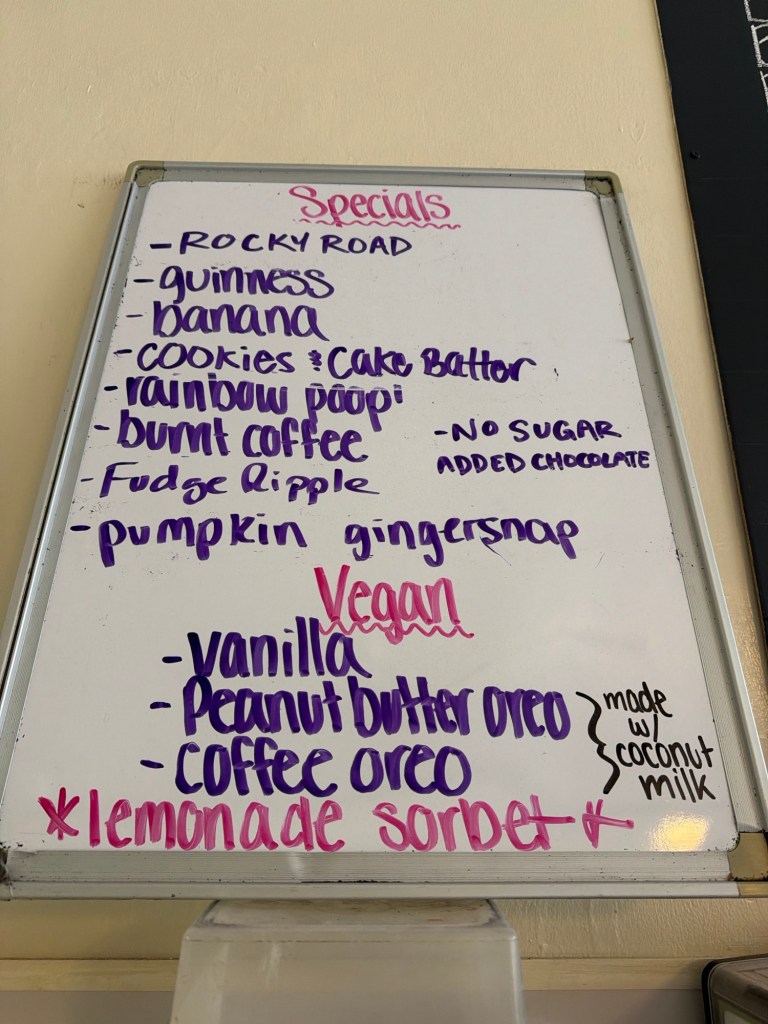 Specials
- ROCKY ROAD
- guinness
- banana
- cookies & Cake Batter
- rainbow poop!
- burnt coffee
- NO SUGAR
ADDED CHOCOLATE
- Fudge Ripple
- pumpkin gingersnap
Vegan
- vanilla
- Peanut butter oreo
- coffee oreo
made
w/
coconut
milk
*lemonade sorbet*